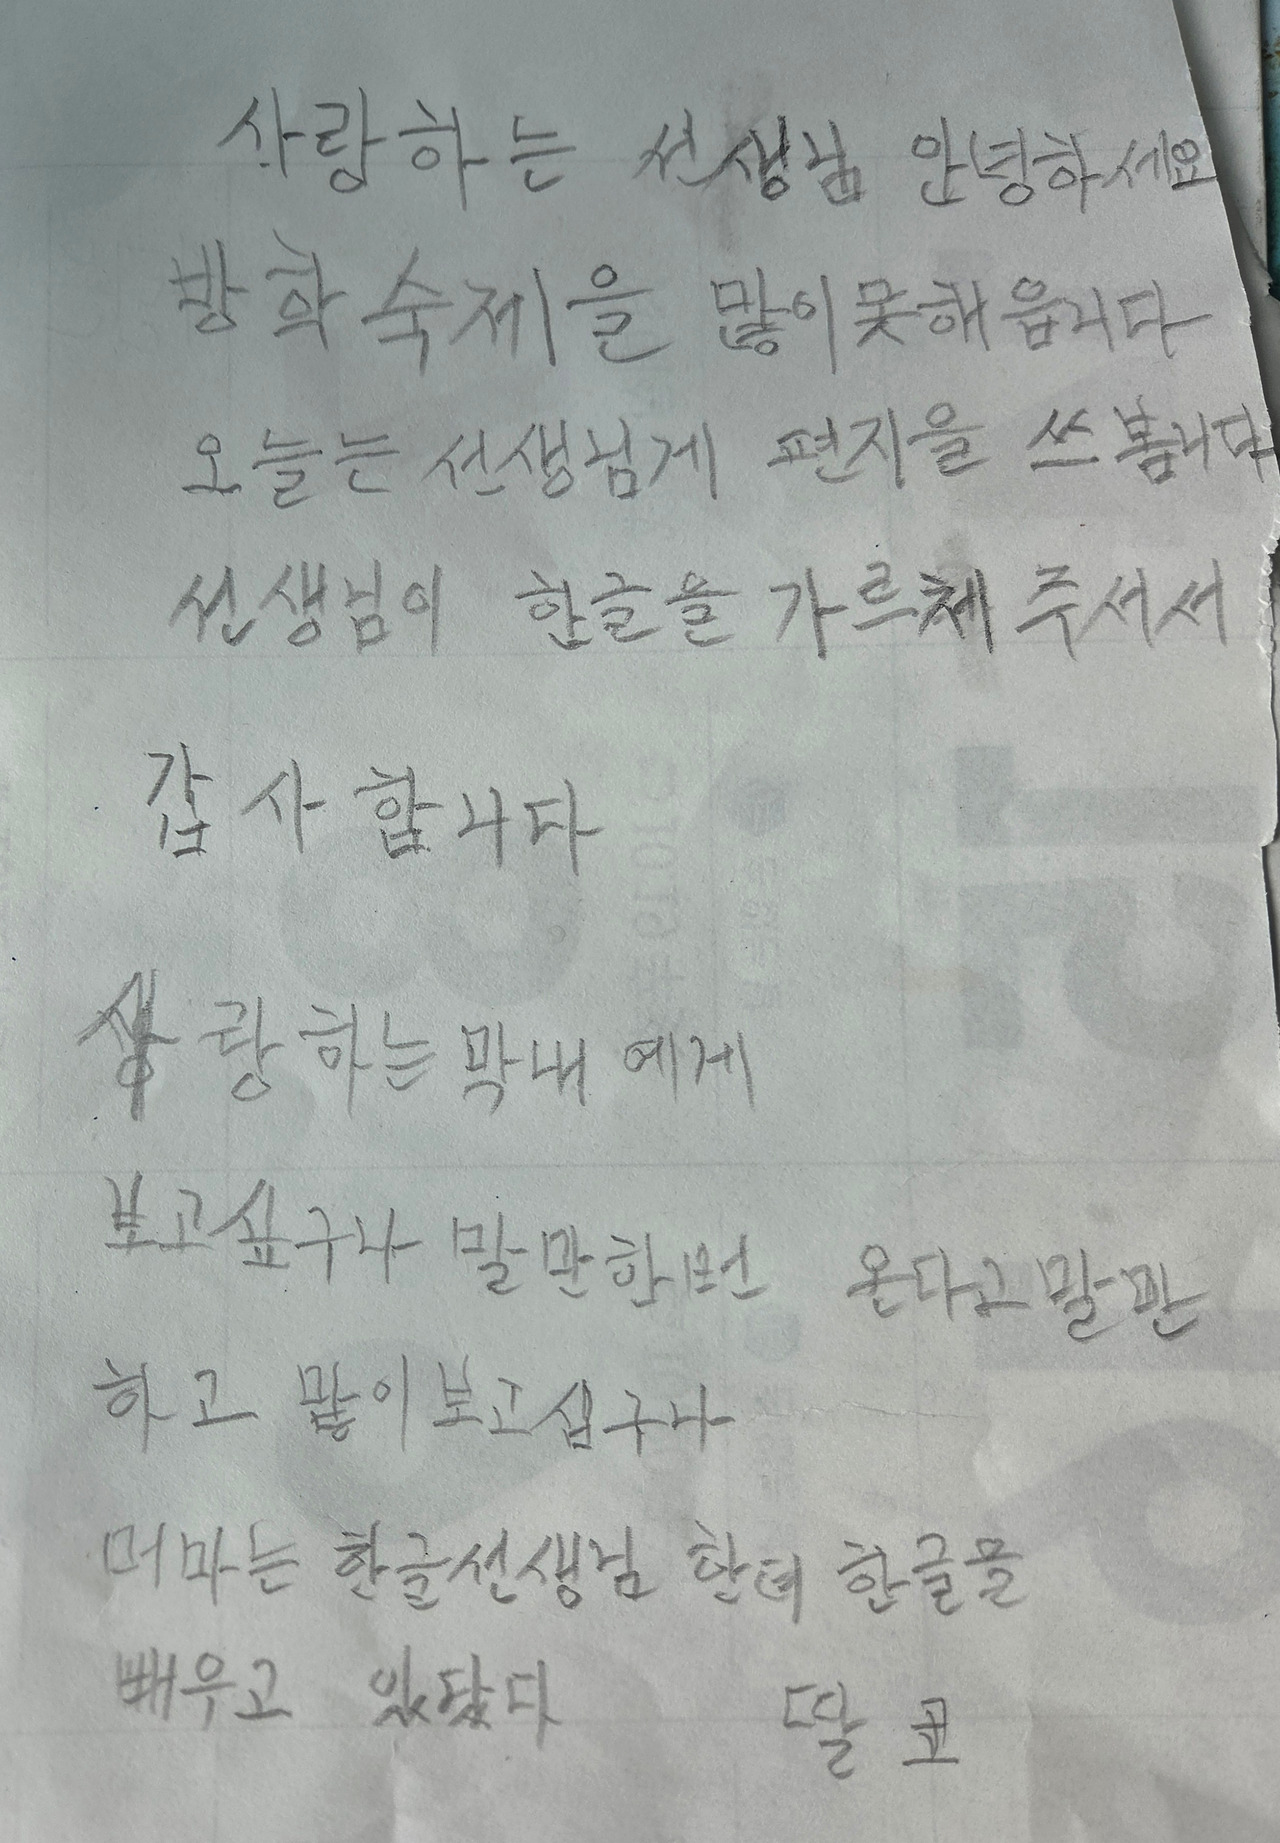 사랑하는 선생님 안녕하세요
방학 숙제을 많이못해읍니다
오늘는 선생님게 편지을 쓰봄니다
선생님이 한글을 가르체 주서서
갑사합니다
사랑하는 막내 에게
보고싶구나 말만한번 온다고말만
하고 많이보고십구나
머마는 한글선생님 한데 한글을
배우고 있닸다